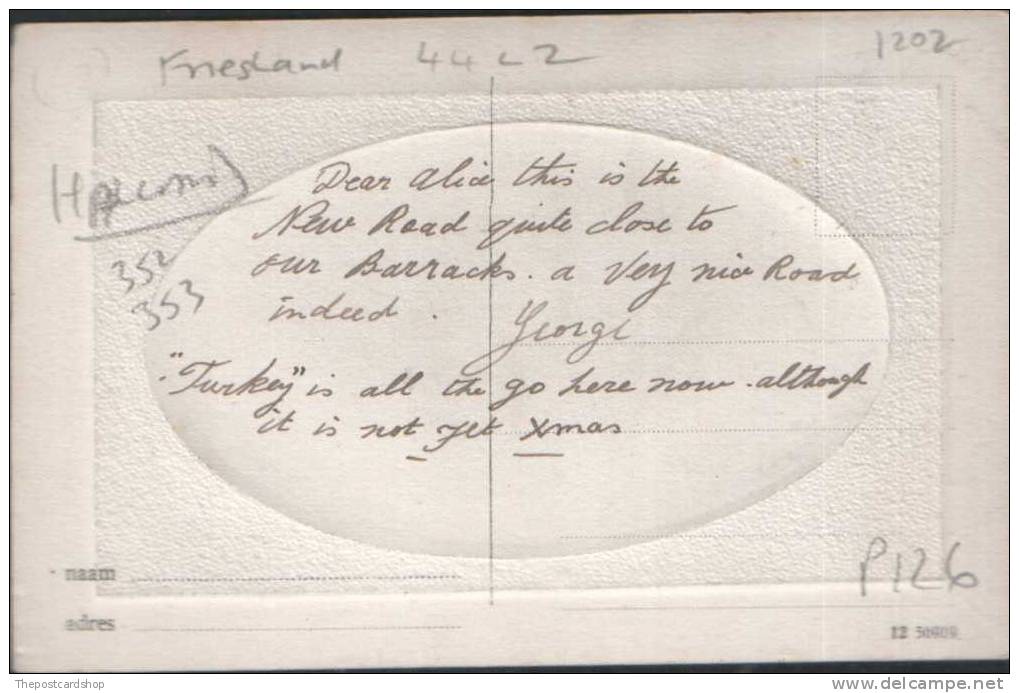 Friesland 44 L 2
1202
352
353
Dear Alice this is the
New Road quite close to
our Barracks. a Very nice Road
indeed.
George
"Turkey" is all the go here now. although
it is not yet Xmas
P126
naam
adres
12
Thepostcardshop
www.delcampe.net